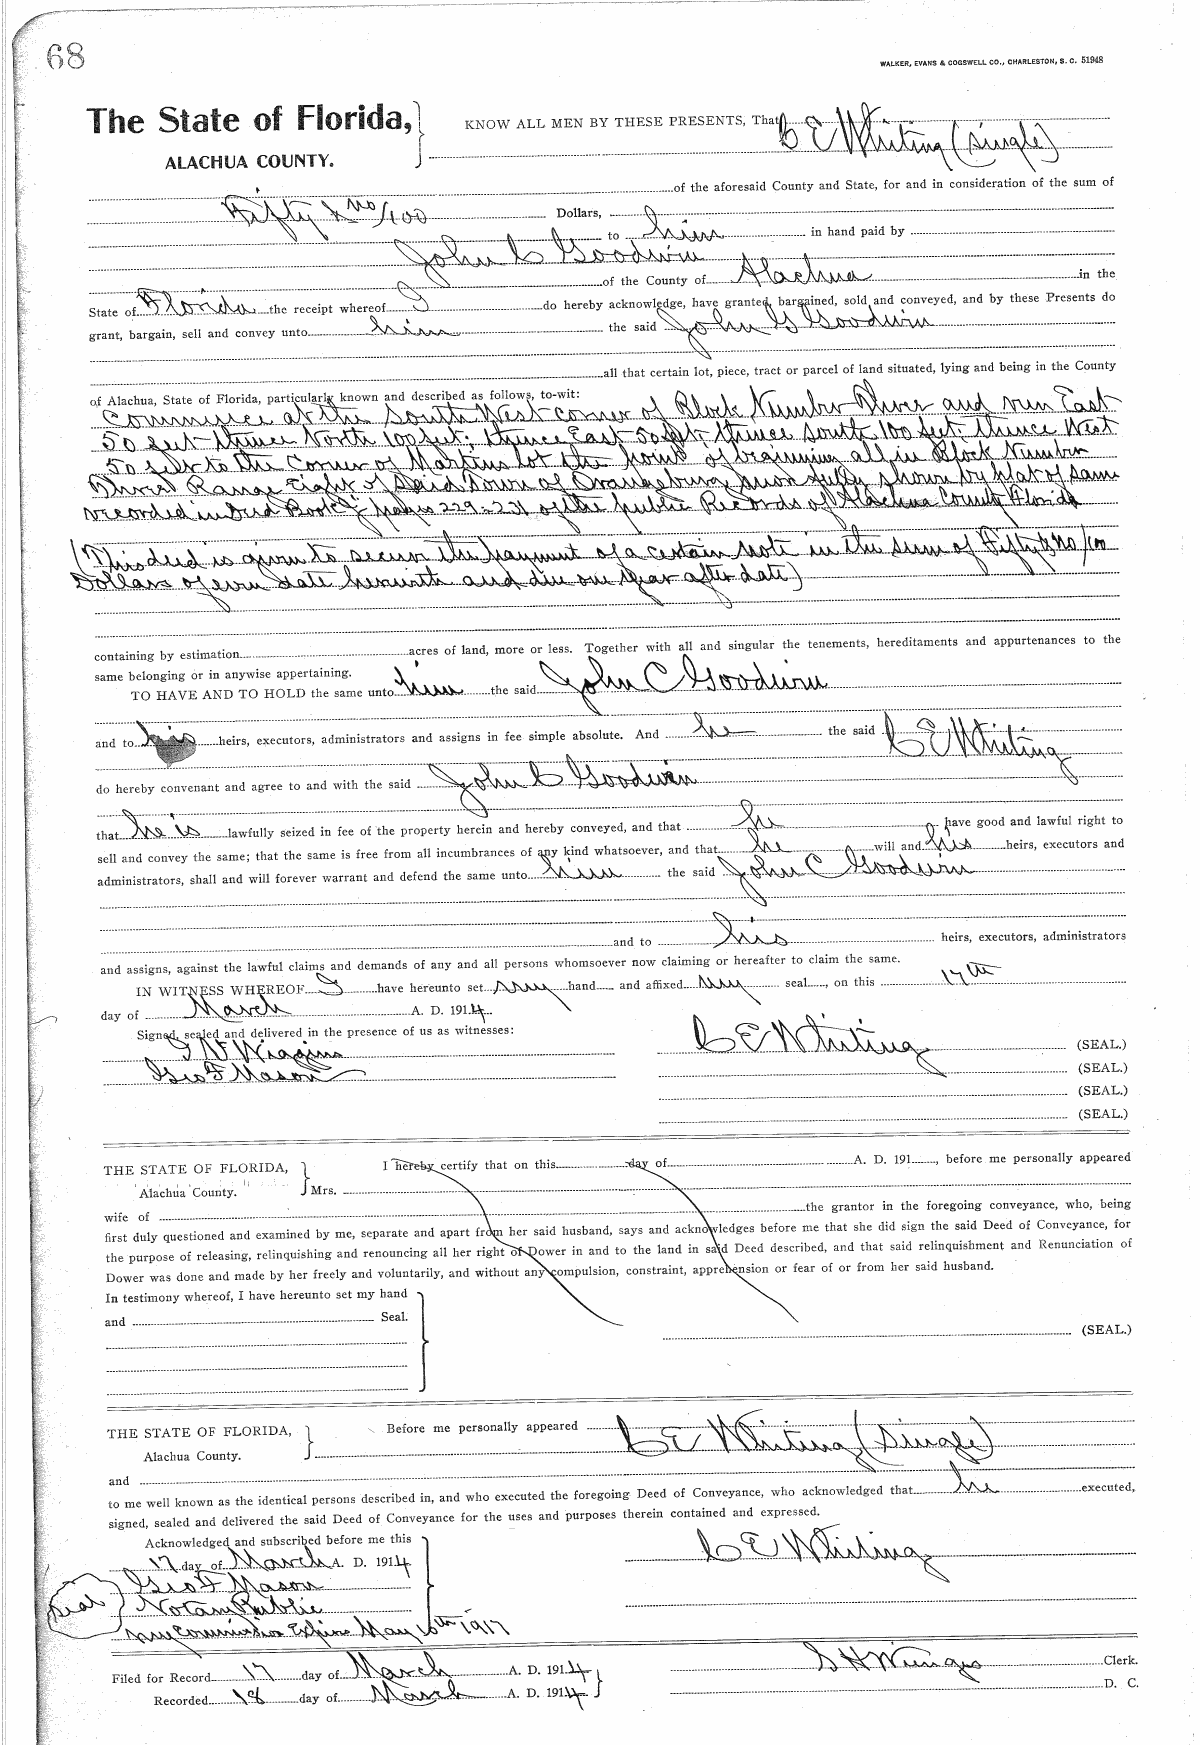 68
WALKER, EVANS & COGSWELL CO., CHARLESTON, S. C. 51948
The State of Florida,
ALACHUA COUNTY.
KNOW ALL MEN BY THESE PRESENTS, That C E Whiting (single)
of the aforesaid County and State, for and in consideration of the sum of
Fifty & no/100 Dollars,
to him in hand paid by
John C Goodwin
of the County of Alachua in the
State of Florida the receipt whereof I do hereby acknowledge, have granted, bargained, sold and conveyed, and by these Presents do
grant, bargain, sell and convey unto him the said John G Goodwin
all that certain lot, piece, tract or parcel of land situated, lying and being in the County
of Alachua, State of Florida, particularly known and described as follows, to-wit:
Commence at the South West corner of Block Number Three and run East
50 feet thence North 100 feet; thence East 50 feet thence South 100 feet. thence West
50 feet to the Corner of Martins lot the point of beginning all in Block Number
Three Range Eight of Said Town of Orangeburg more fully shown by plat of same
recorded in Deed Book pages 229-231 of the public Records of Alachua County Florida
(This deed is given to secure the payment of a certain note in the sum of Fifty & no/100
Dollars of even date herewith and due one year after date)
containing by estimation acres of land, more or less. Together with all and singular the tenements, hereditaments and appurtenances to the
same belonging or in anywise appertaining.
TO HAVE AND TO HOLD the same unto him the said John C Goodwin
and to his heirs, executors, administrators and assigns in fee simple absolute. And he the said C E Whiting
do hereby convenant and agree to and with the said John C Goodwin
that he is lawfully seized in fee of the property herein and hereby conveyed, and that he have good and lawful right to
sell and convey the same; that the same is free from all incumbrances of any kind whatsoever, and that he will and his heirs, executors and
administrators, shall and will forever warrant and defend the same unto him the said John C Goodwin
and to his heirs, executors, administrators
and assigns, against the lawful claims and demands of any and all persons whomsoever now claiming or hereafter to claim the same.
IN WITNESS WHEREOF I have hereunto set my hand and affixed my seal, on this 17th
day of March A. D. 1914
Signed, sealed and delivered in the presence of us as witnesses:
Wiggins
Geo F Mason
C E Whiting (SEAL.)
(SEAL.)
(SEAL.)
(SEAL.)
THE STATE OF FLORIDA,
Alachua County.
I hereby certify that on this day of A. D. 191 , before me personally appeared
Mrs.
wife of the grantor in the foregoing conveyance, who, being
first duly questioned and examined by me, separate and apart from her said husband, says and acknowledges before me that she did sign the said Deed of Conveyance, for
the purpose of releasing, relinquishing and renouncing all her right of Dower in and to the land in said Deed described, and that said relinquishment and Renunciation of
Dower was done and made by her freely and voluntarily, and without any compulsion, constraint, apprehension or fear of or from her said husband.
In testimony whereof, I have hereunto set my hand
and Seal.
(SEAL.)
THE STATE OF FLORIDA,
Alachua County.
Before me personally appeared C E Whiting (Single)
and
to me well known as the identical persons described in, and who executed the foregoing Deed of Conveyance, who acknowledged that he executed,
signed, sealed and delivered the said Deed of Conveyance for the uses and purposes therein contained and expressed.
Acknowledged and subscribed before me this
17 day of March A. D. 1914
C E Whiting
Geo F Mason
Seal
Notary Public
my Commission Expires May 16th 1917
Filed for Record 17 day of March A. D. 1914
Recorded 18 day of March A. D. 1914
S H Wienges Clerk.
D. C.